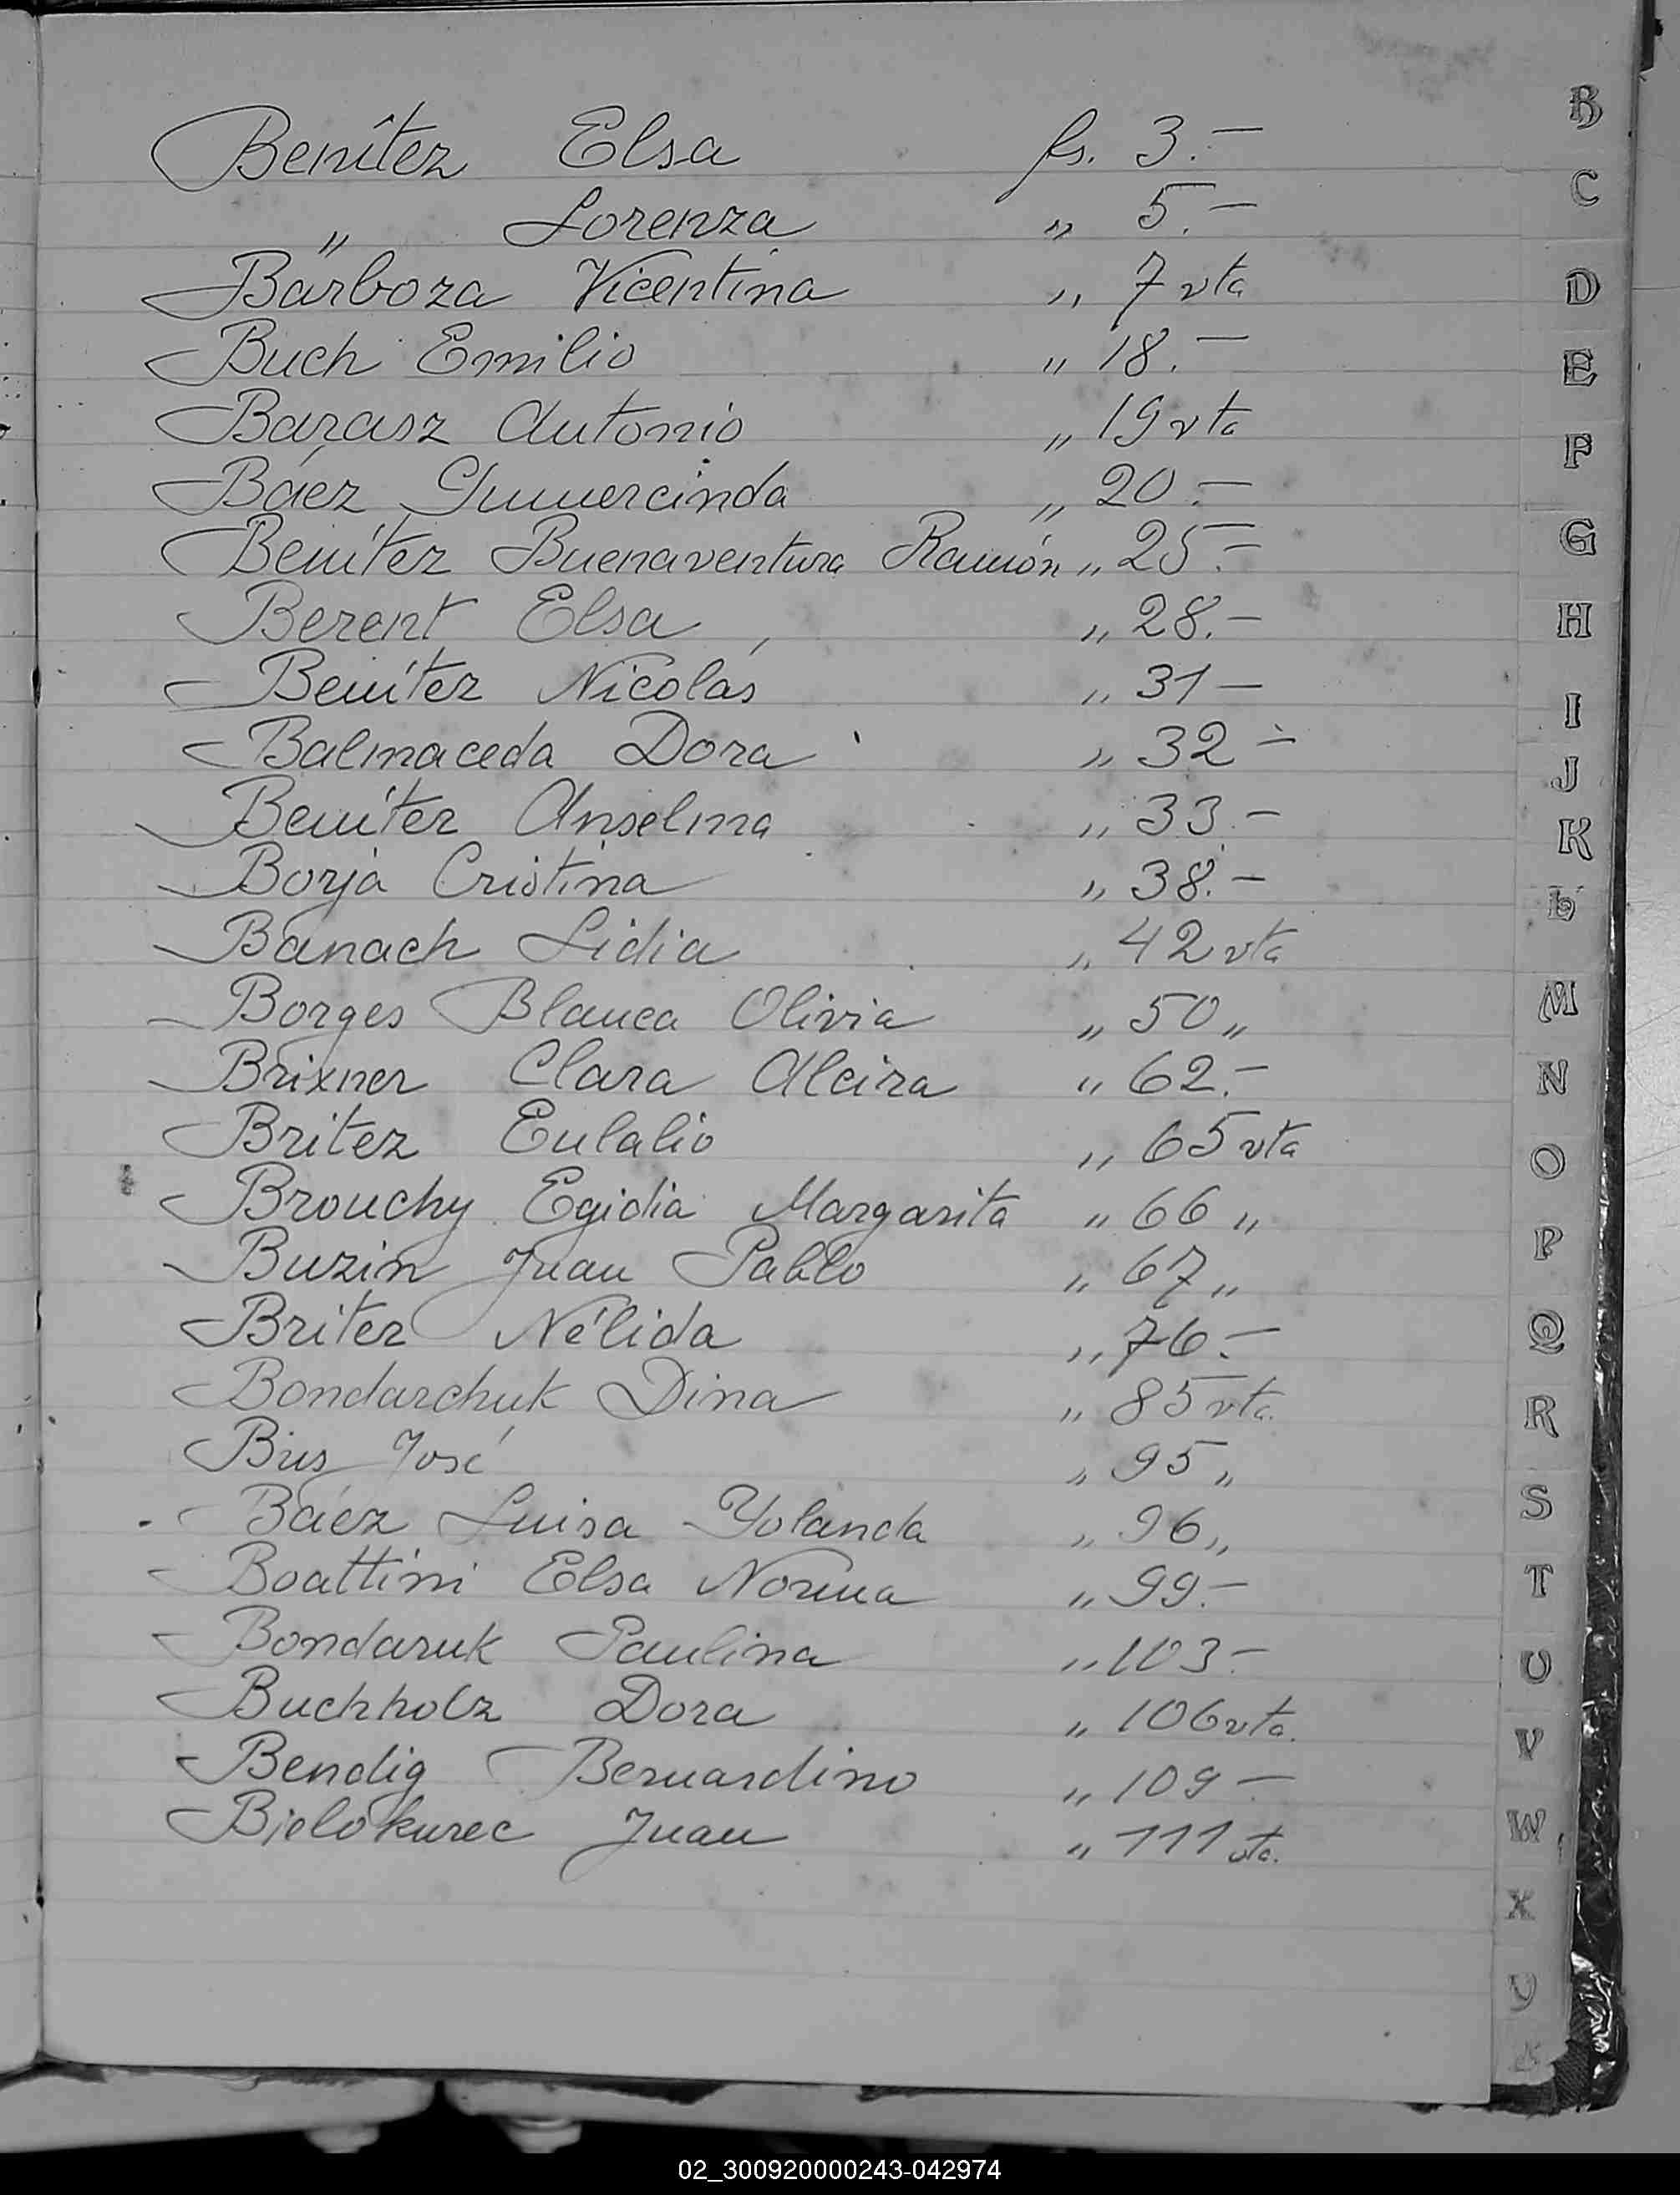 Benítez Elsa fs. 3.-
" Lorenza " 5.-
Barboza Vicentina " 7 vta
Buch Emilio " 18.-
Barasz Antonio " 19 vta
Báez Gumercinda " 20.-
Benítez Buenaventura Ramón " 25.-
Berent Elsa " 28.-
Benítez Nicolás " 31 -
Balmaceda Dora " 32 -
Benítez Anselma " 33.-
Borja Cristina " 38.-
Banach Lidia " 42 vta
Borges Blanca Olivia " 50 "
Brixner Clara Alcira " 62.-
Britez Eulalio " 65 vta
Brouchy Egidia Margarita " 66 "
Buzin Juan Pablo " 67 "
Britez Nélida " 76.-
Bondarchuk Dina " 85 vta.
Bus José " 95 "
Báez Luisa Yolanda " 96 "
Boattini Elsa Norma " 99.-
Bondaruk Paulina " 103.-
Buchholz Dora " 106 vta.
Bendig Bernardino " 109 -
Bielokurec Juan " 111 vta.
B
C
D
E
F
G
H
I
J
K
L
M
N
O
P
Q
R
S
T
U
V
W
X
Y
02_300920000243-042974